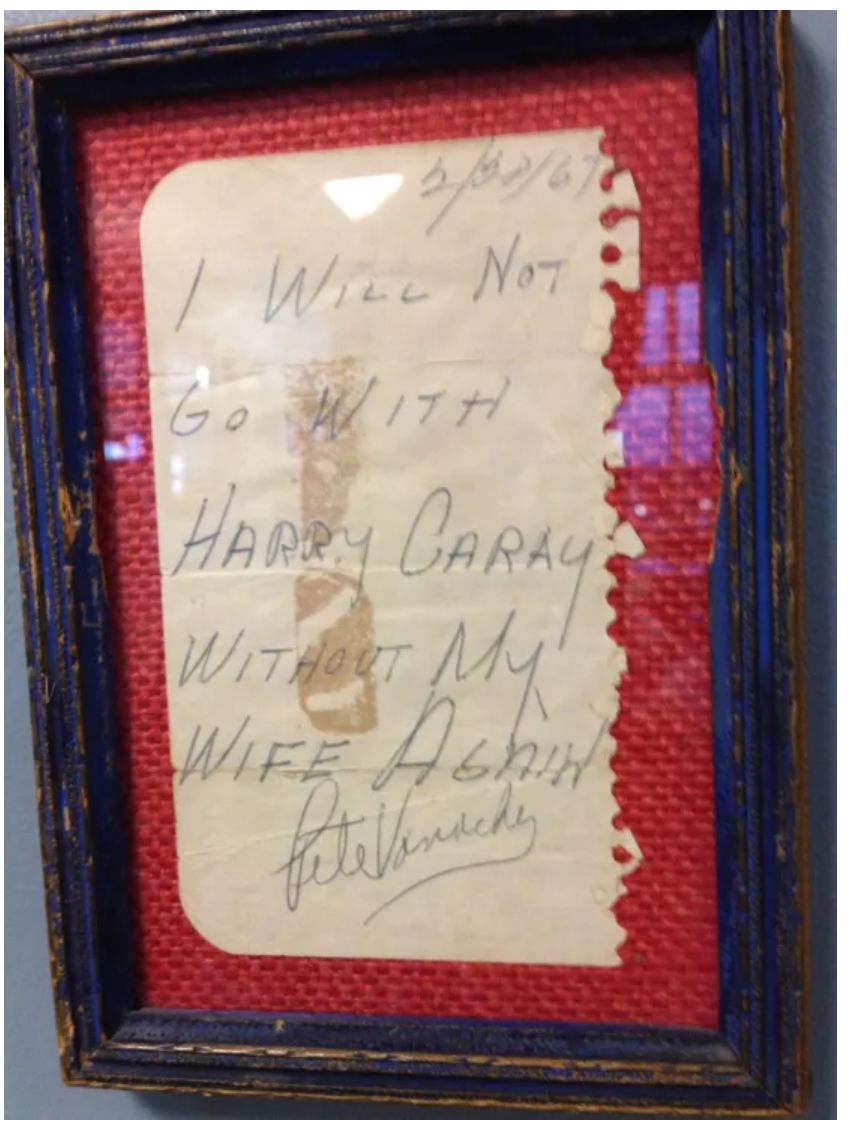 I WILL NOT
GO WITH
HARRY CARAY
WITHOUT MY
WIFE AGAIN
Pete Vonachen